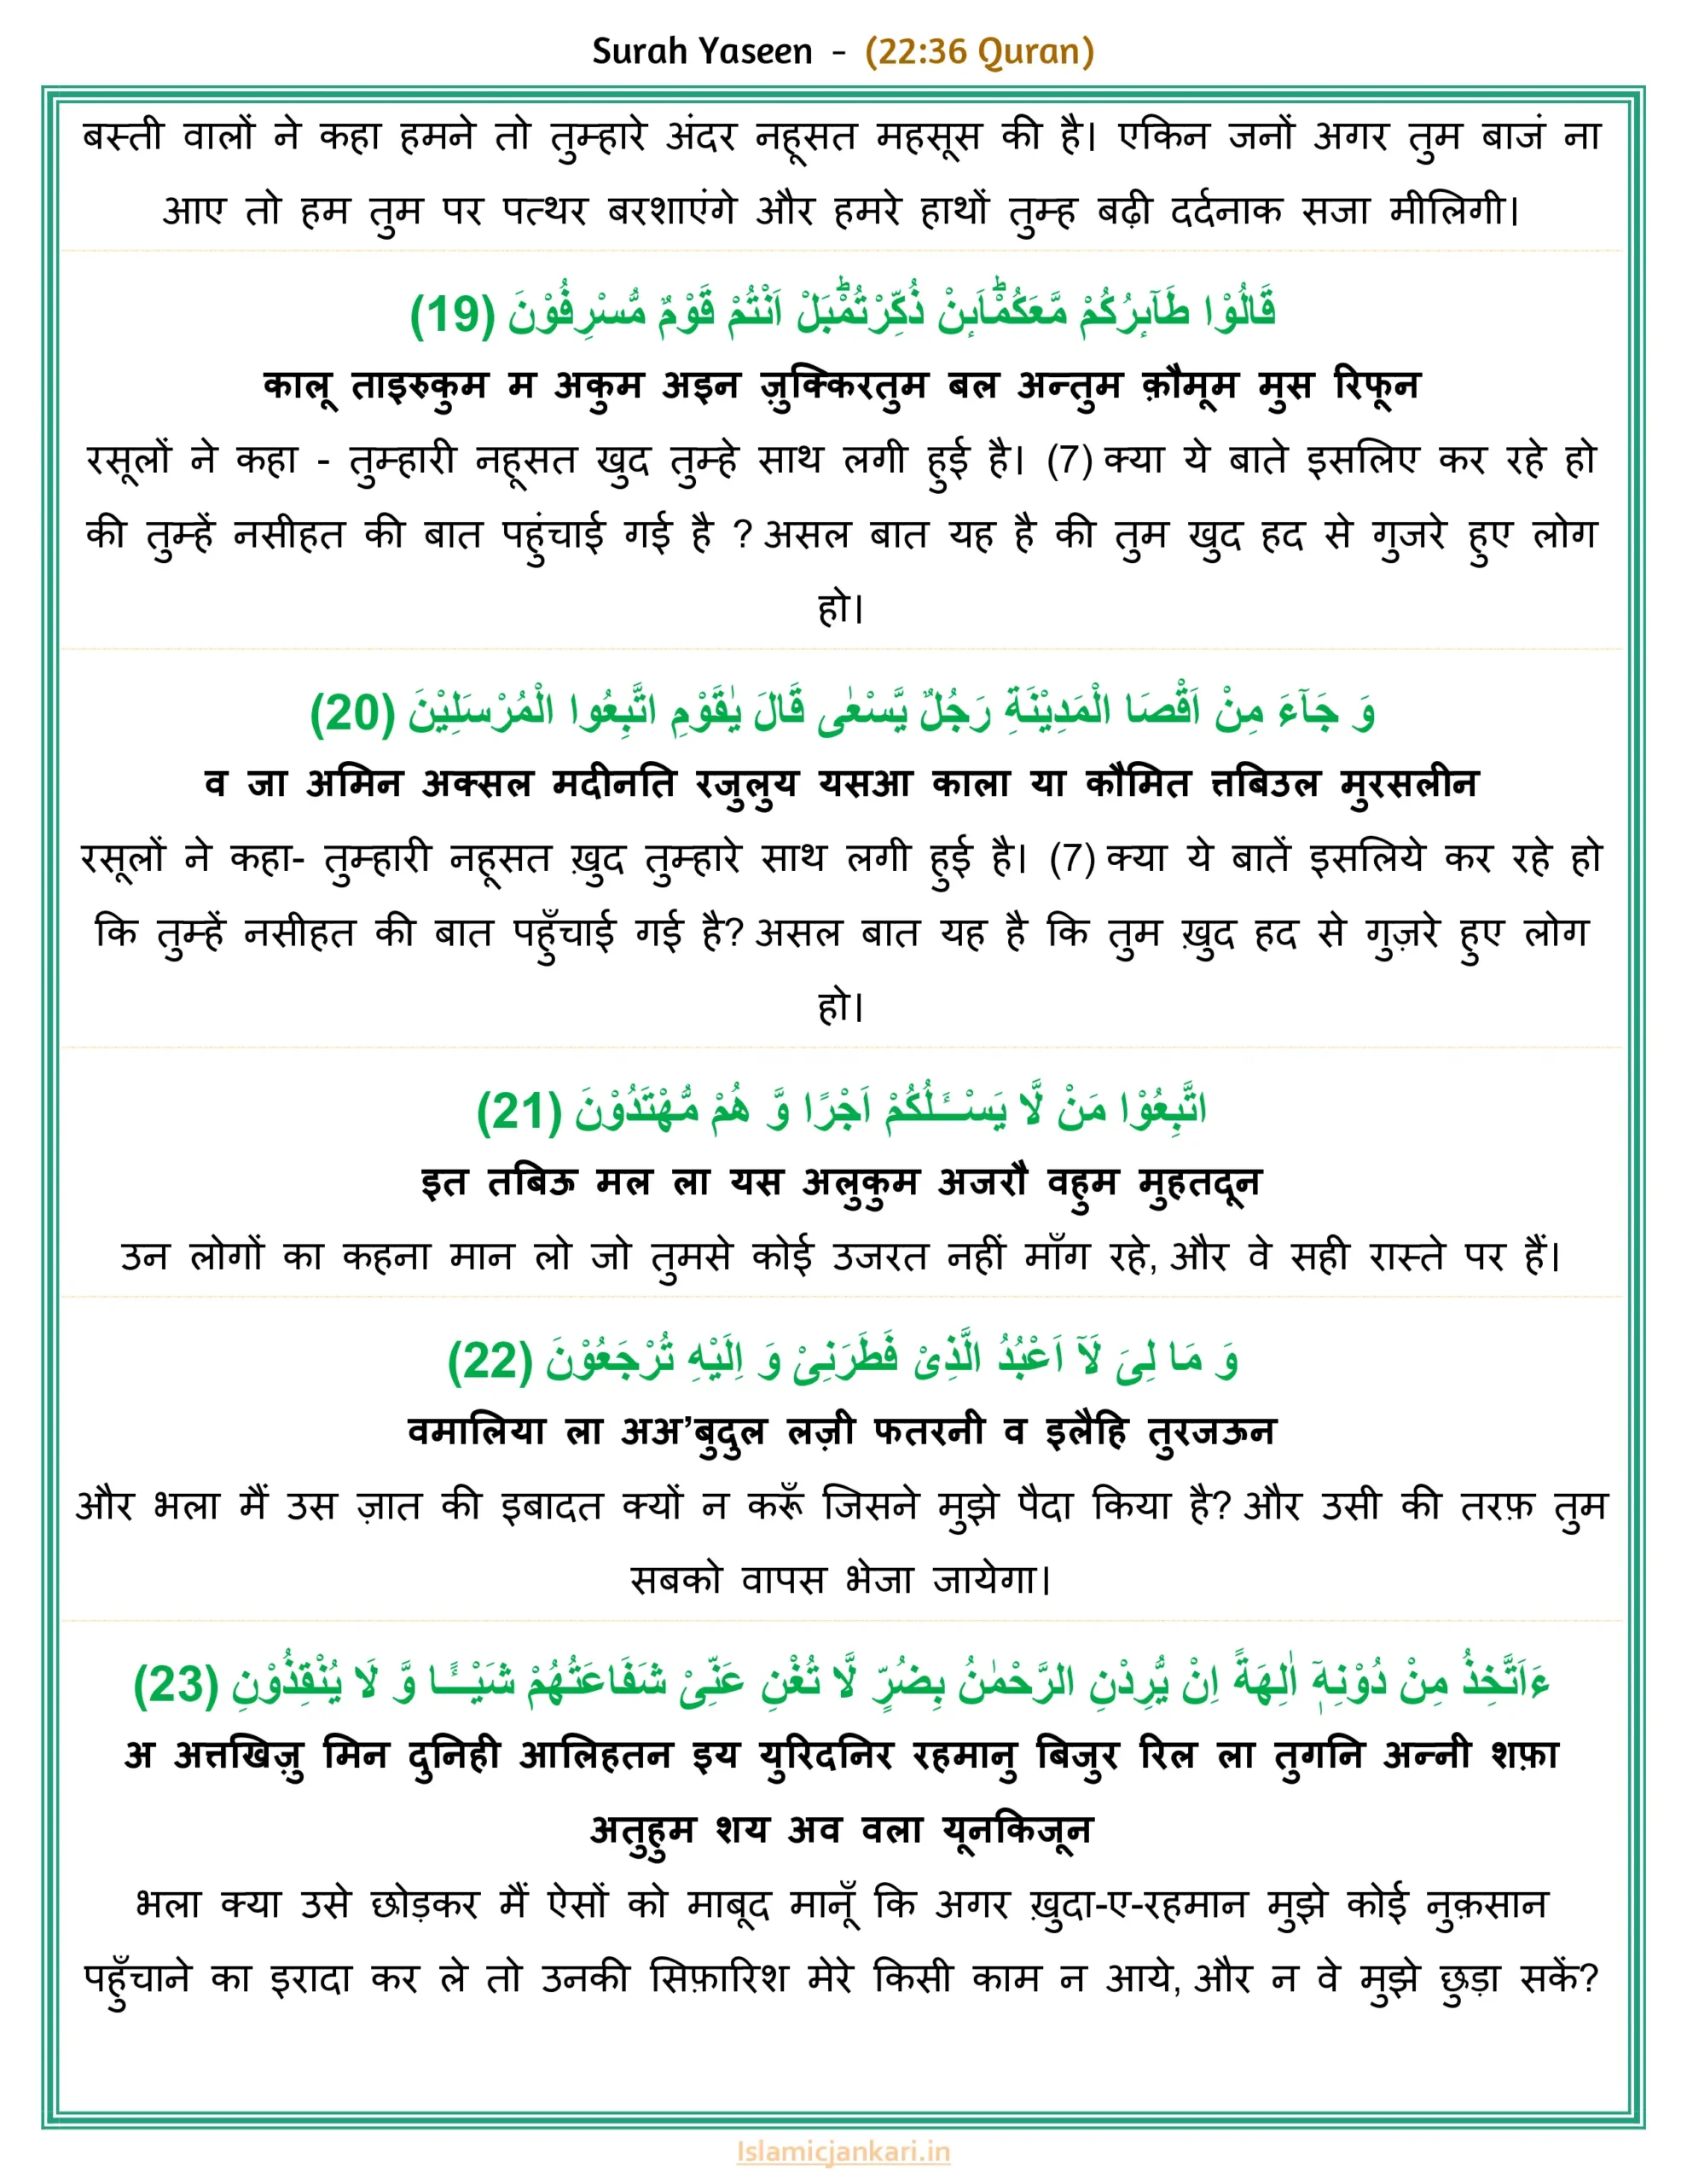 Surah Yaseen - (22:36 Quran)
बस्ती वालों ने कहा हमने तो तुम्हारे अंदर नहूसत महसूस की है। एकिन जनों अगर तुम बाजं ना
आए तो हम तुम पर पत्थर बरशाएंगे और हमरे हाथों तुम्ह बढ़ी दर्दनाक सजा मीलिगी।
قَالُوْا طَآىٕرُكُمْ مَّعَكُمْؕاَىٕنْ ذُكِّرْتُمْؕبَلْ اَنْتُمْ قَوْمٌ مُّسْرِفُوْنَ (19)
कालू ताइरुकुम म अकुम अइन ज़ुक्किरतुम बल अन्तुम क़ौमूम मुस रिफून
रसूलों ने कहा - तुम्हारी नहूसत खुद तुम्हे साथ लगी हुई है। (7) क्या ये बाते इसलिए कर रहे हो
की तुम्हें नसीहत की बात पहुंचाई गई है ? असल बात यह है की तुम खुद हद से गुजरे हुए लोग
हो।
وَ جَآءَ مِنْ اَقْصَا الْمَدِیْنَةِ رَجُلٌ یَّسْعٰى قَالَ یٰقَوْمِ اتَّبِعُوا الْمُرْسَلِیْنَ (20)
व जा अमिन अक्सल मदीनति रजुलुय यसआ काला या कौमित त्तबिउल मुरसलीन
रसूलों ने कहा- तुम्हारी नहूसत ख़ुद तुम्हारे साथ लगी हुई है। (7) क्या ये बातें इसलिये कर रहे हो
कि तुम्हें नसीहत की बात पहुँचाई गई है? असल बात यह है कि तुम ख़ुद हद से गुज़रे हुए लोग
हो।
اتَّبِعُوْا مَنْ لَّا یَسْــٴَـلُكُمْ اَجْرًا وَّ هُمْ مُّهْتَدُوْنَ (21)
इत तबिऊ मल ला यस अलुकुम अजरौ वहुम मुहतदून
उन लोगों का कहना मान लो जो तुमसे कोई उजरत नहीं माँग रहे, और वे सही रास्ते पर हैं।
وَ مَا لِیَ لَاۤ اَعْبُدُ الَّذِیْ فَطَرَنِیْ وَ اِلَیْهِ تُرْجَعُوْنَ (22)
वमालिया ला अअ’बुदुल लज़ी फतरनी व इलैहि तुरजऊन
और भला मैं उस ज़ात की इबादत क्यों न करूँ जिसने मुझे पैदा किया है? और उसी की तरफ़ तुम
सबको वापस भेजा जायेगा।
ءَاَتَّخِذُ مِنْ دُوْنِهٖۤ اٰلِهَةً اِنْ یُّرِدْنِ الرَّحْمٰنُ بِضُرٍّ لَّا تُغْنِ عَنِّیْ شَفَاعَتُهُمْ شَیْــٴًـا وَّ لَا یُنْقِذُوْنِ (23)
अ अत्तखिज़ु मिन दुनिही आलिहतन इय युरिदनिर रहमानु बिजुर रिल ला तुगनि अन्नी शफ़ा
अतुहुम शय अव वला यूनकिजून
भला क्या उसे छोड़कर मैं ऐसों को माबूद मानूँ कि अगर ख़ुदा-ए-रहमान मुझे कोई नुक़सान
पहुँचाने का इरादा कर ले तो उनकी सिफ़ारिश मेरे किसी काम न आये, और न वे मुझे छुड़ा सकें?
Islamicjankari.in